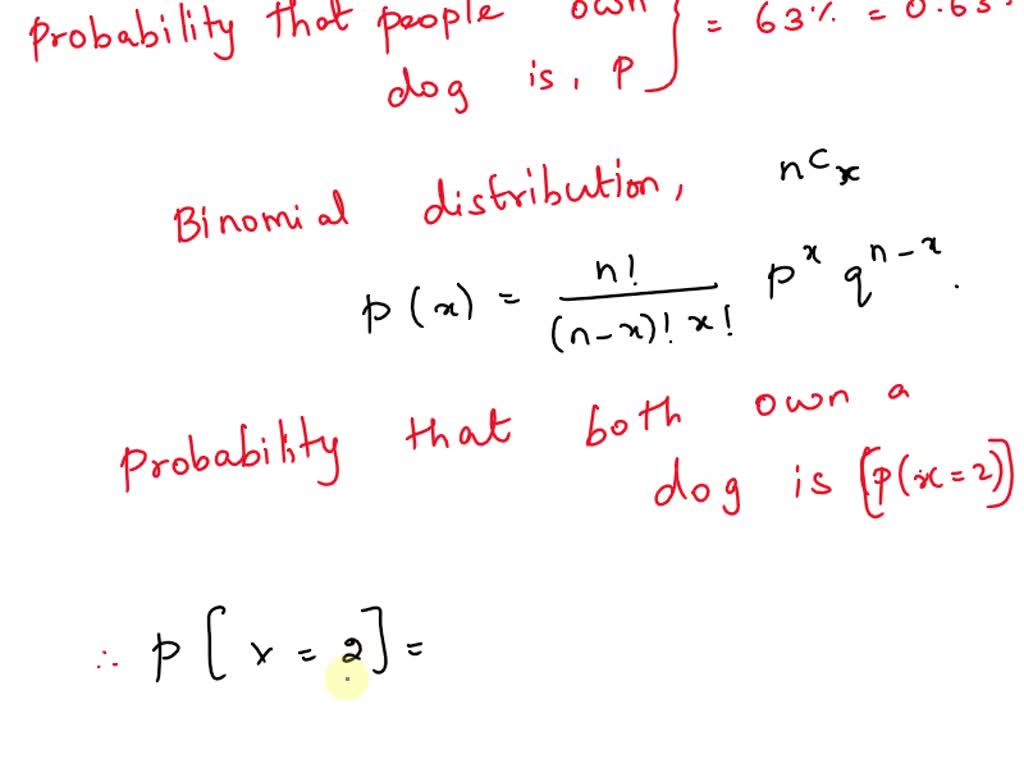 probability that people own } = 63% = 0.63
dog is, p
nCx
Binomial distribution,
p(x) = n! / (n-x)! x! p^x q^n-x.
probability that both own a
dog is [p(x=2)]
∴ p[x = 2] =